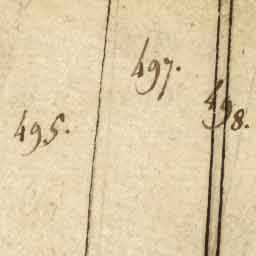 497.
498.
495.